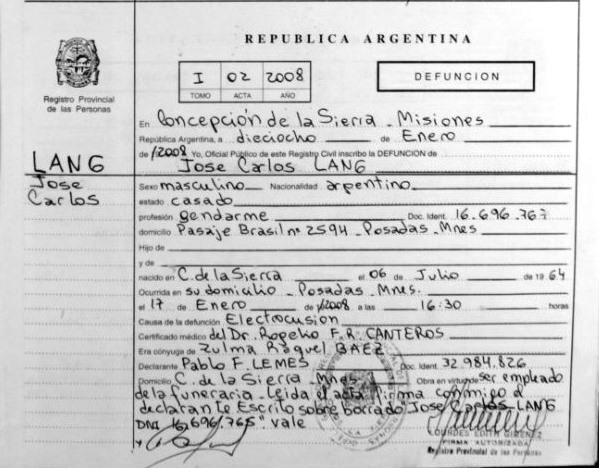 REPUBLICA ARGENTINA
Registro Provincial
de las Personas
I 02 2008
TOMO ACTA AÑO
DEFUNCION
En Concepción de la Sierra - Misiones
República Argentina, a dieciocho de Enero
de /2008 Yo, Oficial Público de este Registro Civil inscribo la DEFUNCION de
Jose Carlos LANG
LANG
Jose
Carlos
Sexo masculino Nacionalidad argentino
estado casado
profesión gendarme Doc. Ident. 16.696.767
domicilio Pasaje Brasil nº 2594 - Posadas - Mnes
Hijo de
y de
nacido en C. de la Sierra el 06 de Julio de 19 64
Ocurrida en su domicilio - Posadas - Mnes.
el 17 de Enero de /2008 a las 16:30 horas
Causa de la defunción Electrocusion
Certificado médico del Dr. Rogelio F. R. CANTEROS
Era cónyuge de Zulma Raquel BAEZ
Declarante Pablo F. LEMES Doc. Ident. 32.984.826
Domicilio C. de la Sierra - Mnes Obra en virtud de ser empleado
de la funeraria - Leida el acta firma conmigo el
declarante Escrito sobre borrado "Jose Carlos LANG
DNI 16.696.765" vale
LOURDES EDITH GIMENEZ
FIRMA AUTORIZADA
Registro Provincial de las Personas